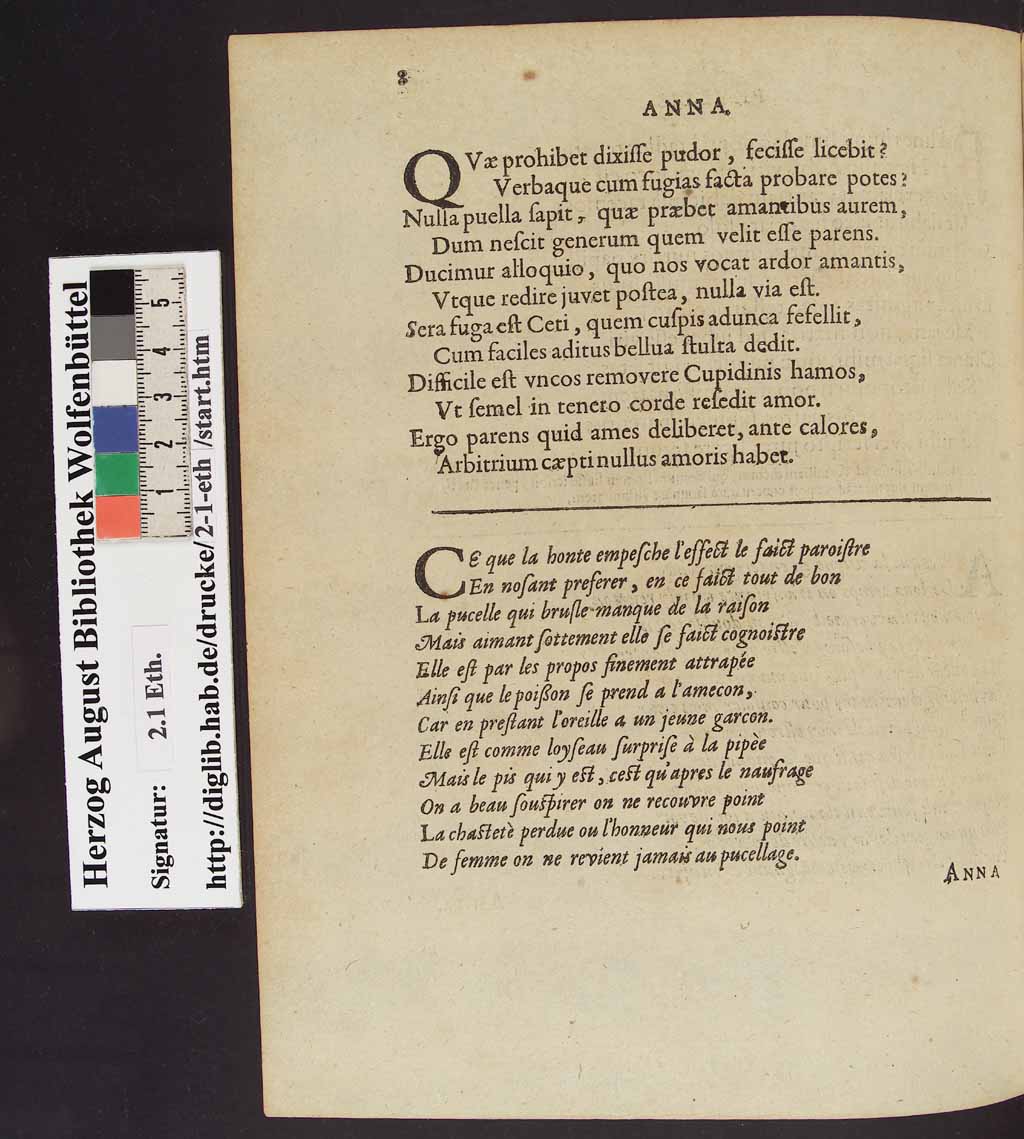 8
ANNA.
QVæ prohibet dixiſſe pudor, feciſſe licebit?
Verbaque cum fugias facta probare potes?
Nulla puella ſapit, quæ præbet amantibus aurem,
Dum neſcit generum quem velit eſſe parens.
Ducimur alloquio, quo nos vocat ardor amantis,
Vtque redire juvet poſtea, nulla via eſt.
Sera fuga eſt Ceti, quem cuſpis adunca fefellit,
Cum faciles aditus bellua ſtulta dedit.
Difficile eſt vncos removere Cupidinis hamos,
Vt ſemel in tenero corde reſedit amor.
Ergo parens quid ames deliberet, ante calores,
Arbitrium cæpti nullus amoris habet.
CE que la honte empeſche l'effect le faict paroiſtre
En noſant preferer, en ce faict tout de bon
La pucelle qui bruſle manque de la raiſon
Mais aimant ſottement elle ſe faict cognoiſtre
Elle eſt par les propos finement attrapée
Ainſi que le poiſſon ſe prend a l'amecon,
Car en preſtant l'oreille a un jeune garcon.
Elle eſt comme loyſeau ſurpriſe à la pipèe
Mais le pis qui y eſt, ceſt qu'apres le naufrage
On a beau ſouſpirer on ne recouvre point
La chaſtetè perdue ou l'honneur qui nous point
De femme on ne revient jamais au pucellage.
ANNA
Herzog August Bibliothek Wolfenbüttel
Signatur: 2.1 Eth.
http://diglib.hab.de/drucke/2-1-eth/start.htm
1 2 3 4 5